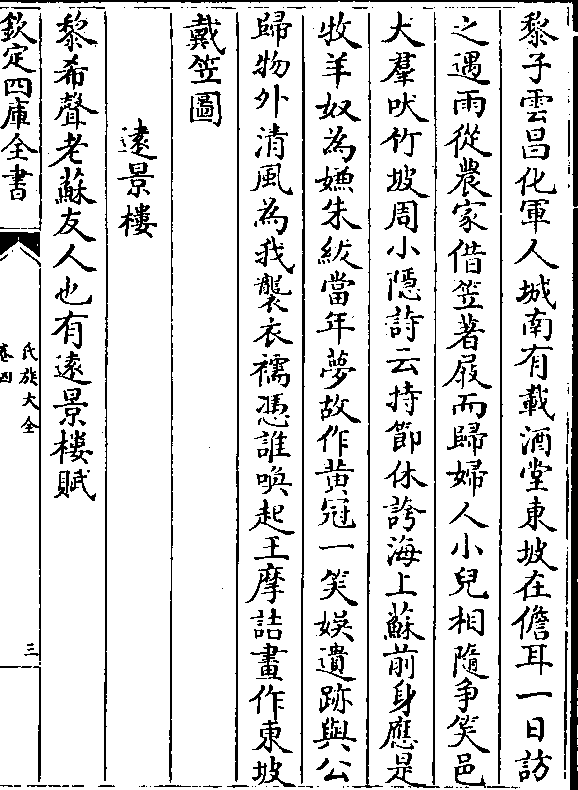 黎子雲昌化軍人城南有載酒堂東坡在儋耳一日訪
之遇雨從農家借笠著屐而歸婦人小兒相隨爭笑邑
犬羣吠竹坡周小隱詩云持節休誇海上蘇前身應是
牧羊奴為嫌朱紱當年夢故作黄冠一笑娛遺跡與公
歸物外清風為我襲衣襦憑誰喚起王摩詰畫作東坡
戴笠圖
遠景樓
黎希聲老蘇友人也有遠景樓賦
欽定四庫全書
氏族大全
卷四
三